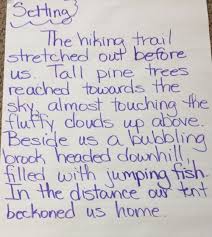 Setting
The hiking trail
stretched out before
us. Tall pine trees
reached towards the
sky, almost touching the
fluffy clouds up above.
Beside us a bubbling
brook headed downhill,
filled with jumping fish.
In the distance our tent
beckoned us home.